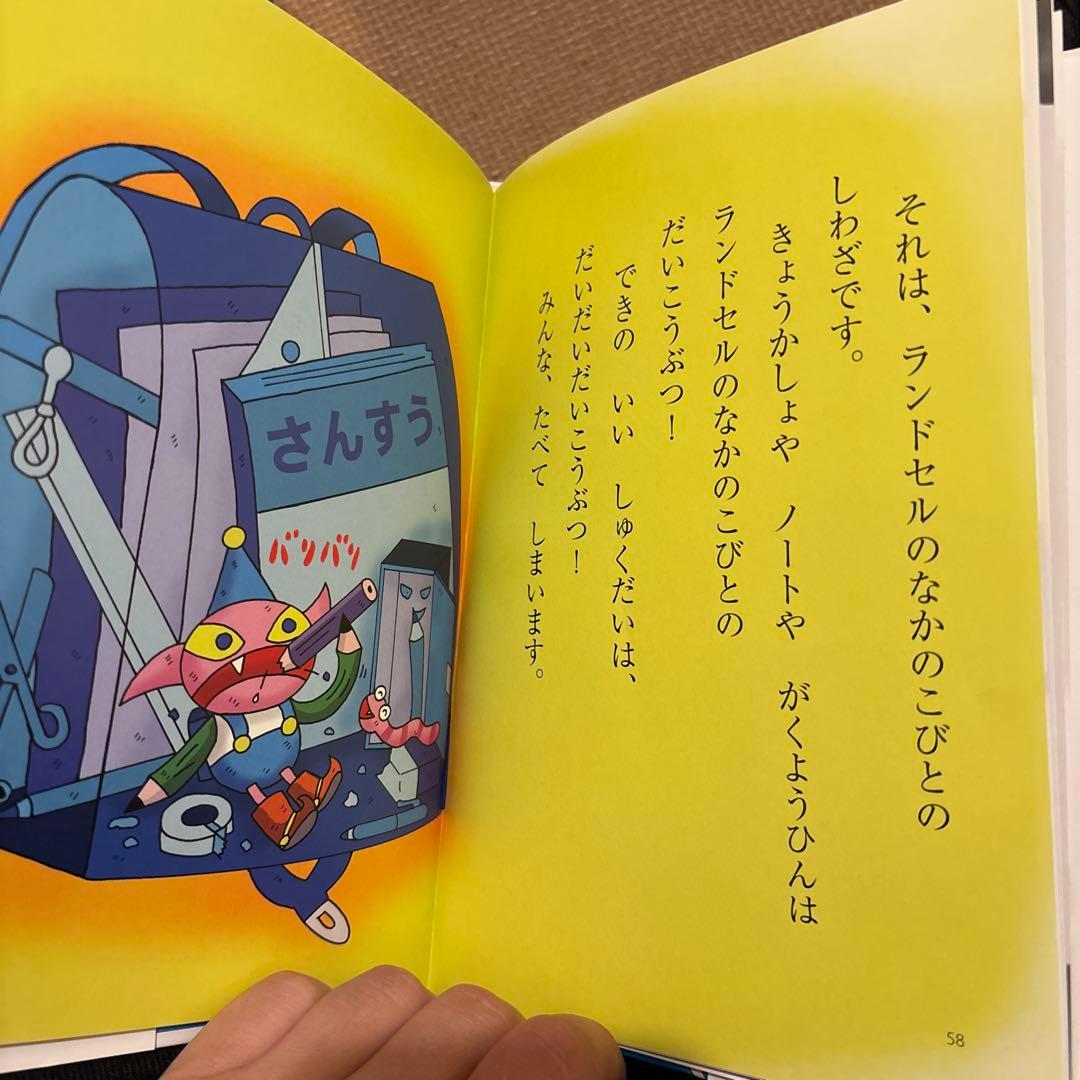 それは、ランドセルのなかのこびとの
しわざです。
きょうかしょや ノートや がくようひんは
ランドセルのなかのこびとの
だいこうぶつ!
できの いい しゅくだいは、
だいだいだいこうぶつ!
みんな、たべて しまいます。
58
さんすう
バリバリ